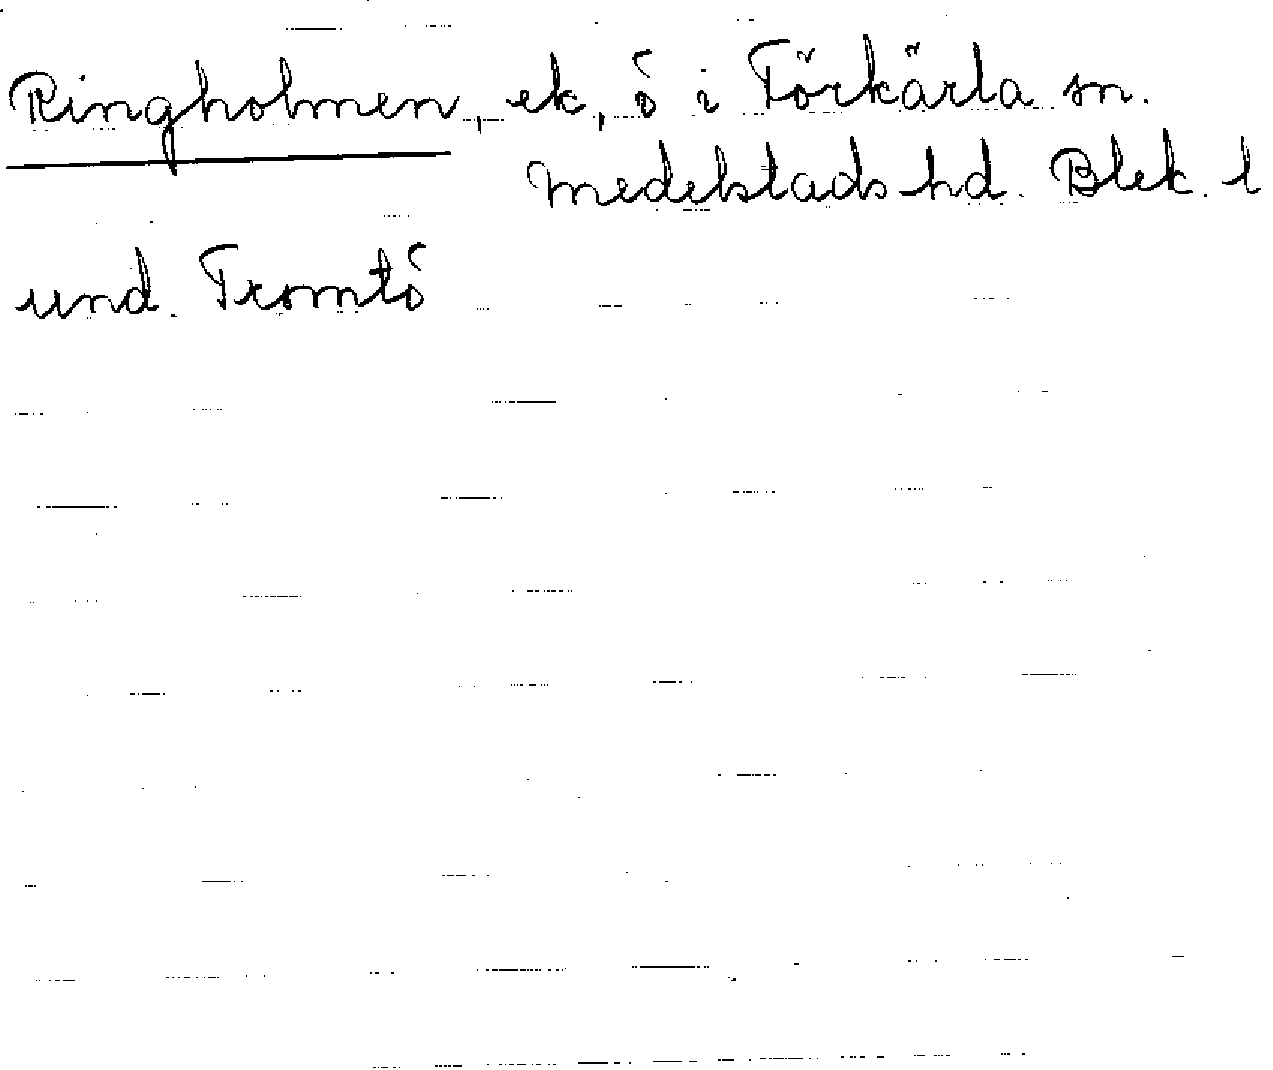 Ringholmen, ek, ö i Förkärla sn.
Medelstads hd. Blek. l
und. Tromtö